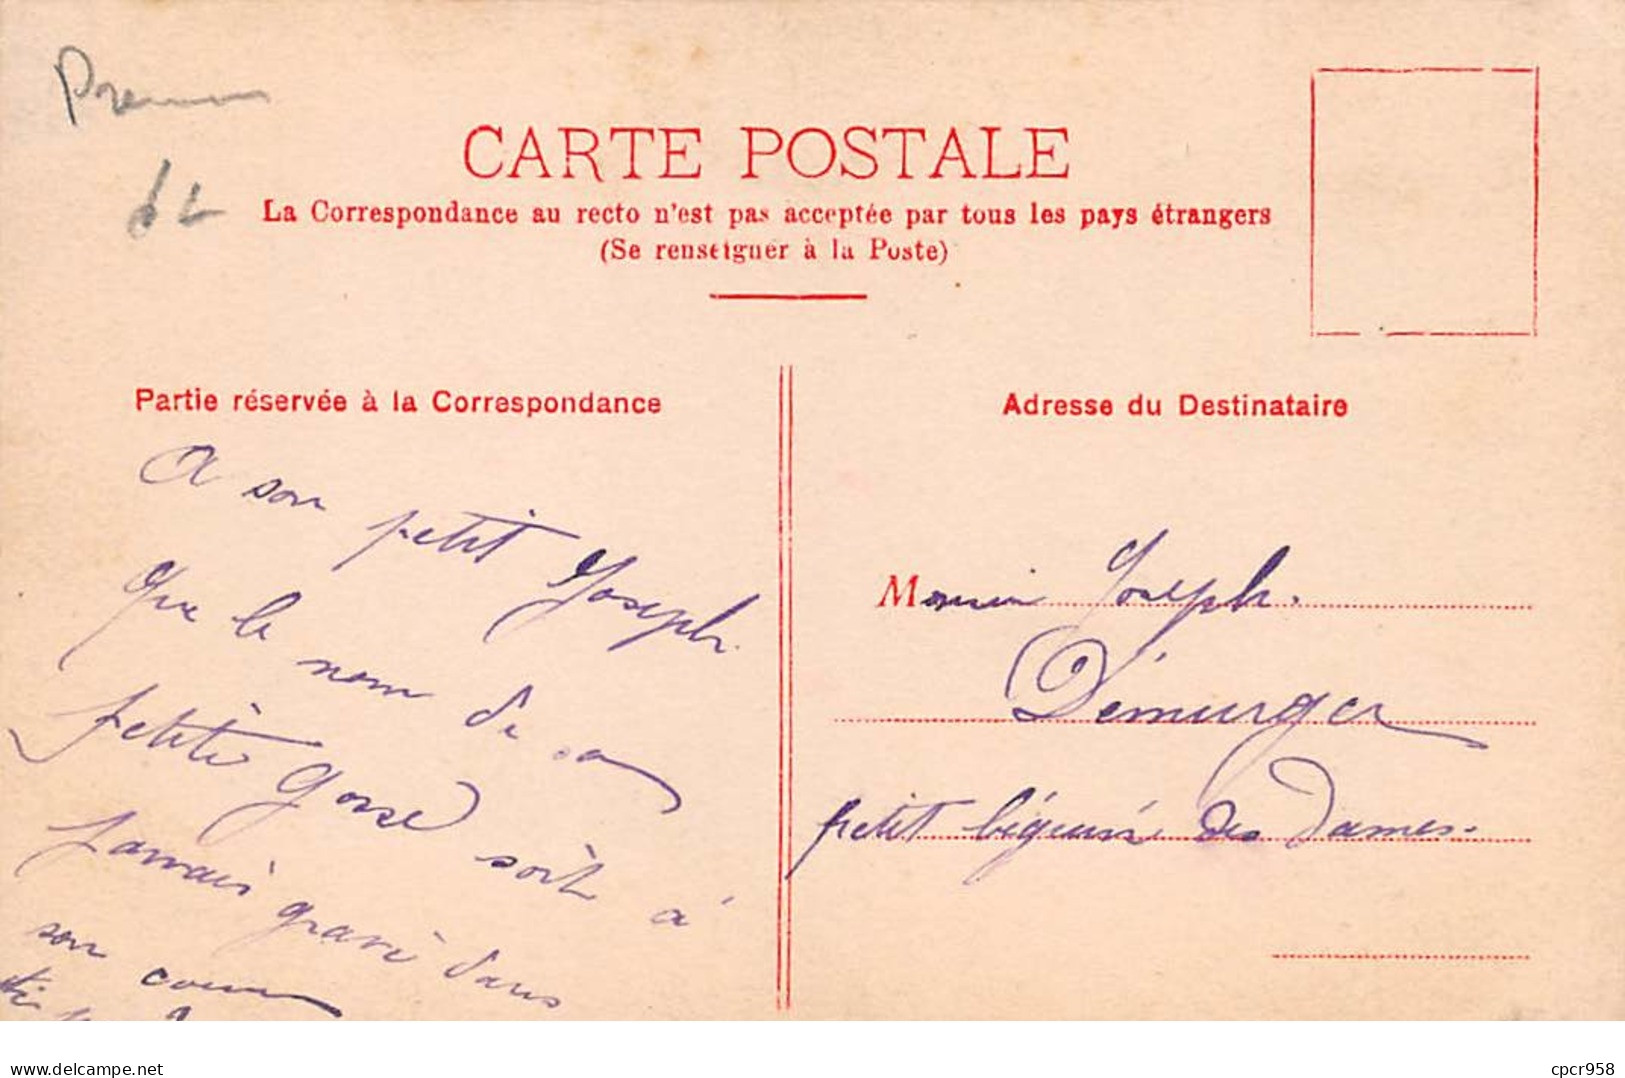 Prenom
CARTE POSTALE
La Correspondance au recto n'est pas acceptée par tous les pays étrangers
(Se renseigner à la Poste)
Partie réservée à la Correspondance
Adresse du Destinataire
A son petit Joseph.
Que le nom de sa
petite gosse soit à
Jamais gravé dans
son coeur
Monsieur Joseph.
Démurger
petit béguin des Dames.
delcampe.net
cpcr958